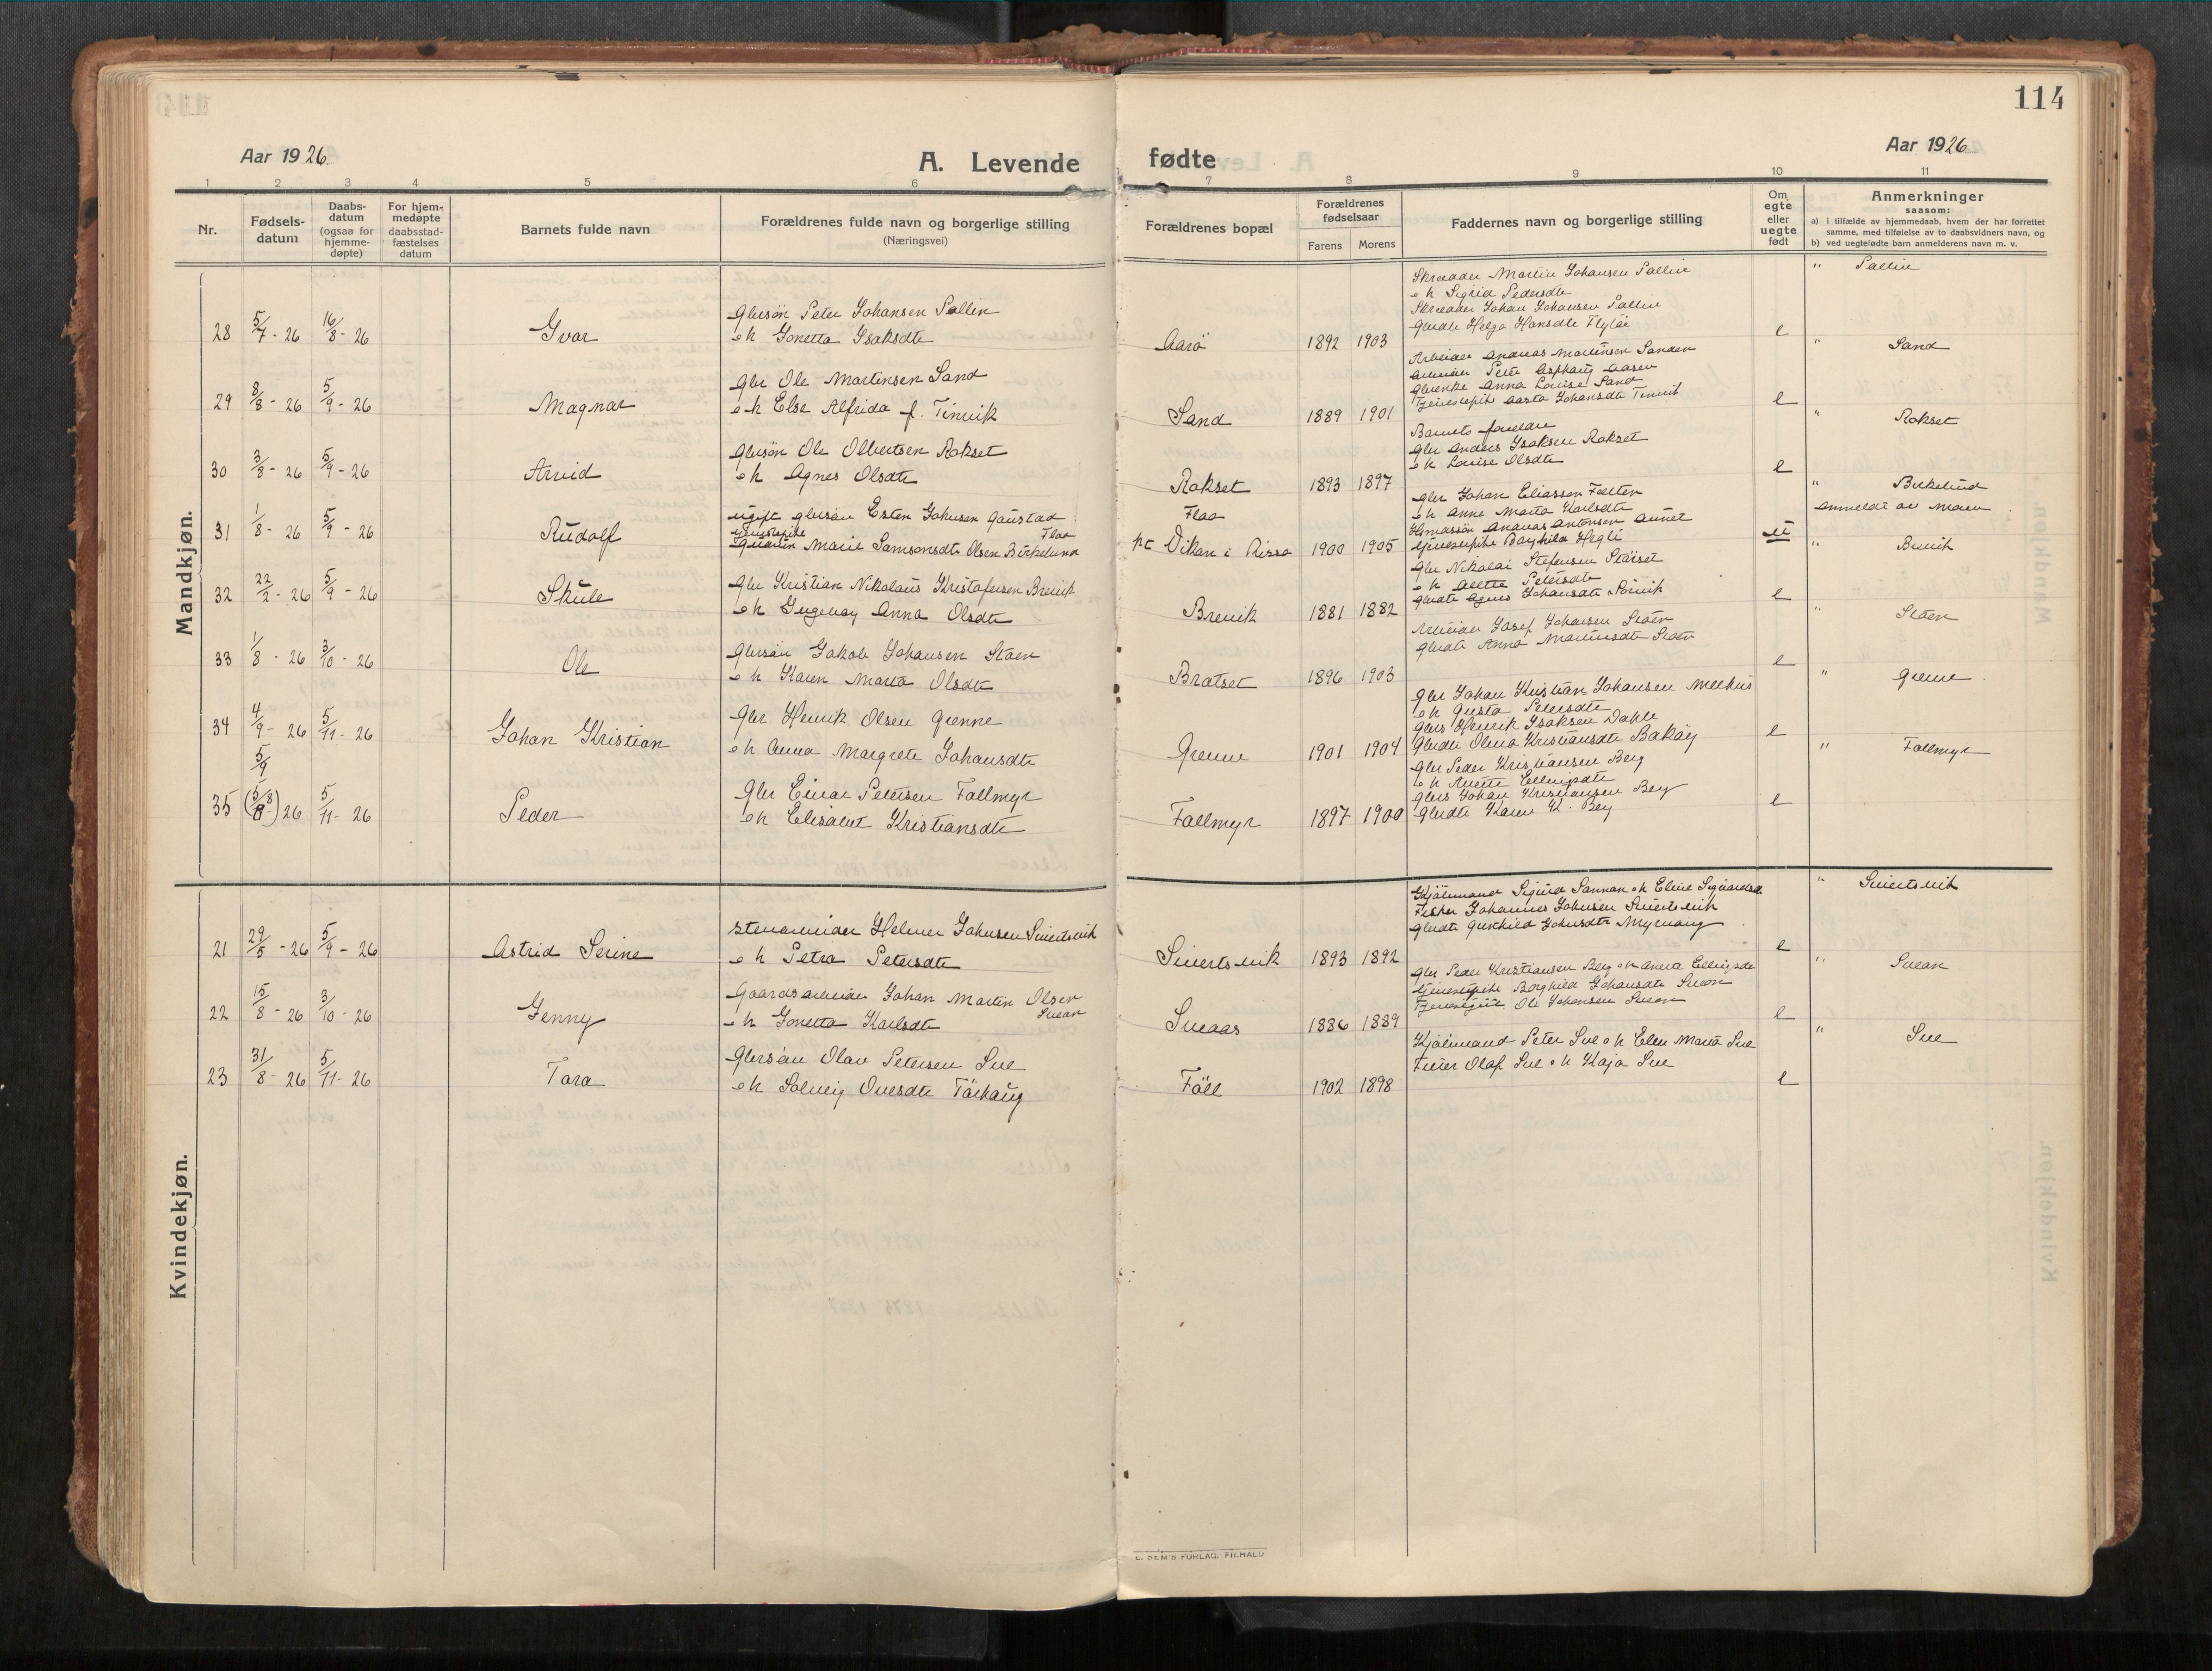 114
Aar 1926.
A. Levende fødte
Aar 1926
1 2 3 4 5 6 7 8 9 10 11
Nr.
Fødsels-
datum
Daabs-
datum
(ogsaa for
hjemme-
døpte)
For hjem-
medøpte
daabsstad-
fæstelses
datum
Barnets fulde navn
Forældrenes fulde navn og borgerlige stilling
(Næringsvei)
Forældrenes bopæl
Forældrenes
fødselsaar
Farens
Morens
Faddernes navn og borgerlige stilling
Om
egte
eller
uegte
født
Anmerkninger
saasom:
a) i tilfælde av hjemmedaab, hvem der har forrettet
samme, med tilføielse av to daabsvidners navn, og
b) ved uegtefødte barn anmelderens navn m. v.
Mandkjøn.
28 5/7 - 26 16/8 - 26 Ivar
Gbrsøn Peter Johansen Sallin
o h Jonetta Isaksdtr
Aarö 1892 1903
Skrædder Martin Johansen Sallin
o h Sigrid Pedersdtr
Skrædder Johan Johansen Sallin
Gbrdtr Helga Hansdtr
e
" Sallin
29 8/8 - 26 5/9 - 26 Magnar
Gbr Ole Martinsen Sand
o h Else Alfrida f. Tinvik
Sand 1889 1901
Arbeider Andreas Martinsen Sanden
Arbeider Peter Asphaug Aasen
Gbrenke Anna Louise Sand
Tjenestepike Aasta Johansdtr Tinvik
e
" Sand
30 3/8 - 26 5/9 - 26 Arvid
Gbrsøn Ole Olbertsen Rokset
o h Agnes Olsdtr
Rokset 1893 1897
Barnets forældre
Gbr Anders Isaksen Rokset
o h Louise Olsdtr
e
" Rokset
31 1/8 - 26 5/9 - 26 Rudolf
ugift gbrsøn Esten Johnsen Gaustad
Flaa
tjenestepike Marie Samsonsdtr Olsen Birkelund
Flaa
pt Vikan i Rissa 1900 1905
Gbr Johan Eliassen Fætten
o h Anne Marta Karlsdtr
Andreas Antonsen Aunet
tjenestepike Borghild Hegli
u
" Birkelund
anmeldt av moren
32 22/2 - 26 5/9 - 26 Skule
Gbr Kristian Nikolaus Kristofersen Brevik
o h Ingeborg Anna Olsdtr
Brevik 1881 1882
Gbr Nikolai Stefensen Störset
o h Aletta Petersdtr
Gbrdtr Agnes Johansdtr
e
" Brevik
33 1/8 - 26 3/10 - 26 Ole
Gbrsøn Jakob Johansen Stöen
o h Karen Marta Olsdtr
Bratset 1896 1903
Arbeider Josef Johansen Stöen
Gbrdtr Anna Martinsdtr Stöen
e
" Stöen
34 4/9 - 26 5/11 - 26 Johan Kristian
Gbr Henrik Olsen Grenne
o h Anna Margrete Johansdtr
Grenne 1901 1904
Gbr Johan Kristian Johansen Melhus
o h Gusta Petersdtr
Gbrs Henrik Isaksen Dahle
Gbrdtr Olena Kristiansdtr Baköy
e
" Grenne
35 5/9 (5/8) 26 5/11 - 26 Peder
Gbr Einar Petersen Fallmyr
o h Elisabet Kristiansdtr
Fallmyr 1897 1900
Gbr Peder Kristiansen Berg
o h Anette Ellingsdtr
Gbrs Johan Kristiansen Berg
Gbrdtr Karen K. Berg
e
" Fallmyr
Kvindekjøn.
21 29/5 - 26 5/9 - 26 Astrid Serine
Stenarbeider Helmer Johnsen Sivertsvik
o h Petra Petersdtr
Sivertsvik 1893 1892
Kjölmand Sigurd Sannan o h Eline Sigvardsdtr
Fisker Johannes Johnsen Sivertsvik
Gbrdtr Gunhild Johnsdtr Myrvang
e
" Sivertsvik
22 15/8 - 26 3/10 - 26 Jenny
Gaardsarbeider Johan Martin Olsen
Svean
o h Jonetta Karlsdtr
Sveaas 1886 1889
Gbr Peder Kristiansen Berg o h Anetta Ellingsdtr
tjenestepike Borghild Johansdtr Svean
Tjenestegut Ole Johansen Svean
e
" Svean
23 31/8 - 26 5/11 - 26 Tora
Gbrsøn Olav Petersen Sve
o h Solveig Ovesdtr Törhaug
Föll 1902 1898
Kjölmand Peter Sve o h Elen Marta Sve
Fisker Olaf Sve o h Kaja Sve
e
" Sve
E. SEM'S FORLAG, FR.HALD